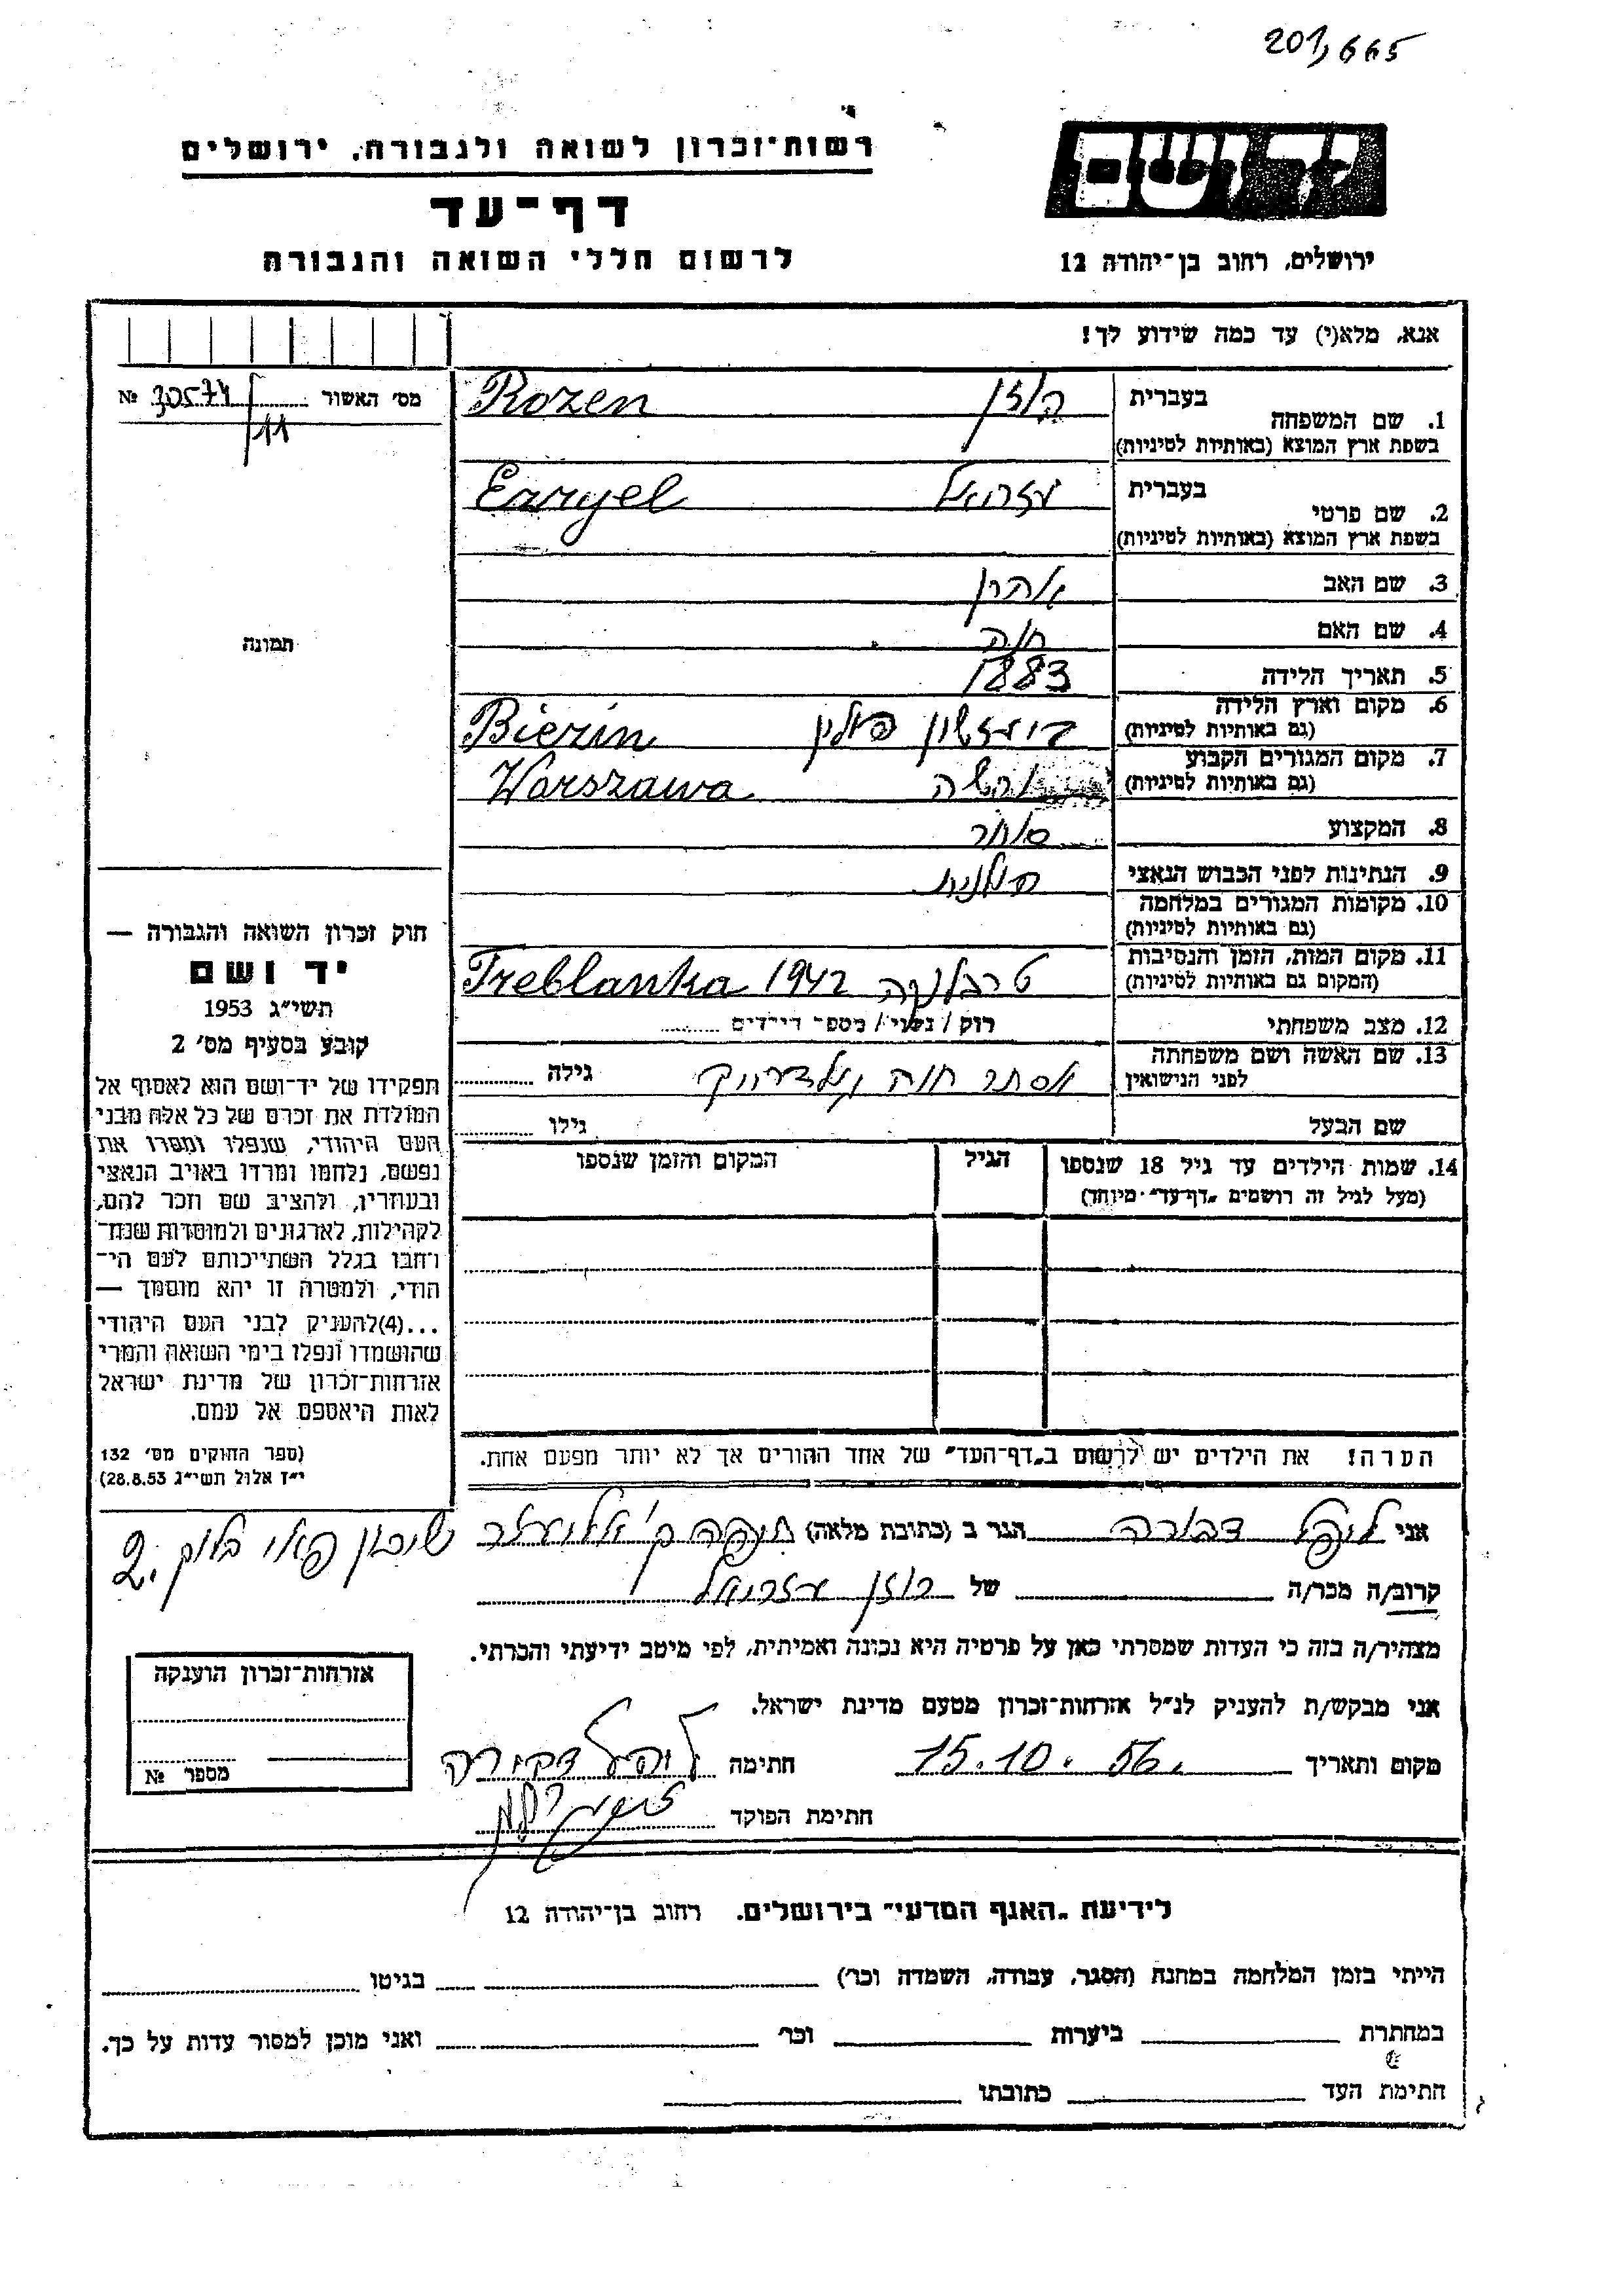 201,665
רשות־זכרון לשואה ולגבורה, ירושלים
יד ושם
דף־עד
לרשום חללי השואה והגבורה
ירושלים, רחוב בן־יהודה 12
אנא, מלא(י) עד כמה שידוע לך!
מס׳ האשור 30574 №
11
1. שם המשפחה בעברית רוזן
בשפת ארץ המוצא (באותיות לטיניות) Rozen
2. שם פרטי בעברית עזריאל
בשפת ארץ המוצא (באותיות לטיניות) Ezryel
3. שם האב אהרן
4. שם האם חוה
תמונה
5. תאריך הלידה 1883
6. מקום וארץ הלידה
(גם באותיות לטיניות) פולין Bierzin
7. מקום המגורים הקבוע
(גם באותיות לטיניות) ורשה Warszawa
8. המקצוע סוחר
9. הנתינות לפני הכבוש הנאצי פולנית
10. מקומות המגורים במלחמה
(גם באותיות לטיניות)
11. מקום המות, הזמן והנסיבות
(המקום גם באותיות לטיניות) טרבלינקה 1942 Treblanka
12. מצב משפחתי רוק / נשוי / מספר ילדים
13. שם האשה ושם משפחתה
לפני הנישואין אסתר חוה גילה
שם הבעל גילו
14. שמות הילדים עד גיל 18 שנספו הגיל המקום והזמן שנספו
(מעל לגיל זה רושמים „דף־עד” מיוחד)
חוק זכרון השואה והגבורה —
יד ושם
תשי״ג 1953
קובע בסעיף מס׳ 2
תפקידו של יד־ושם הוא לאסוף אל
המולדת את זכרם של כל אלה מבני
העם היהודי, שנפלו ומסרו את
נפשם, נלחמו ומרדו באויב הנאצי
ובעוזריו, ולהציב שם וזכר להם,
לקהילות, לארגונים ולמוסדות שנח־
רבו בגלל השתייכותם לעם הי־
הודי, ולמטרה זו יהא מוסמך —
...(4)להעניק לבני העם היהודי
שהושמדו ונפלו בימי השואה והמרי
אזרחות־זכרון של מדינת ישראל
לאות היאספם אל עמם.
(ספר החוקים מס׳ 132
י״ז אלול תשי״ג 28.8.53)
הערה! את הילדים יש לרשום ב„דף־העד” של אחד ההורים אך לא יותר מפעם אחת.
אני דבורה הגר ב (כתובת מלאה) חיפה ק׳ אליעזר שיכון בלוק 2.
קרוב/ה מכר/ה של רוזן עזריאל
מצהיר/ה בזה כי העדות שמסרתי כאן על פרטיה היא נכונה ואמיתית, לפי מיטב ידיעתי והכרתי.
אני מבקש/ת להעניק לנ״ל אזרחות־זכרון מטעם מדינת ישראל.
אזרחות־זכרון הוענקה
מספר №
מקום ותאריך 15.10.56. חתימה דבורה
חתימת הפוקד
לידיעת „האגף המדעי” בירושלים. רחוב בן־יהודה 12
הייתי בזמן המלחמה במחנה (הסגר, עבודה, השמדה וכו׳) בגיטו
במחתרת ביערות וכו׳ ואני מוכן למסור עדות על כך.
חתימת העד כתובתו